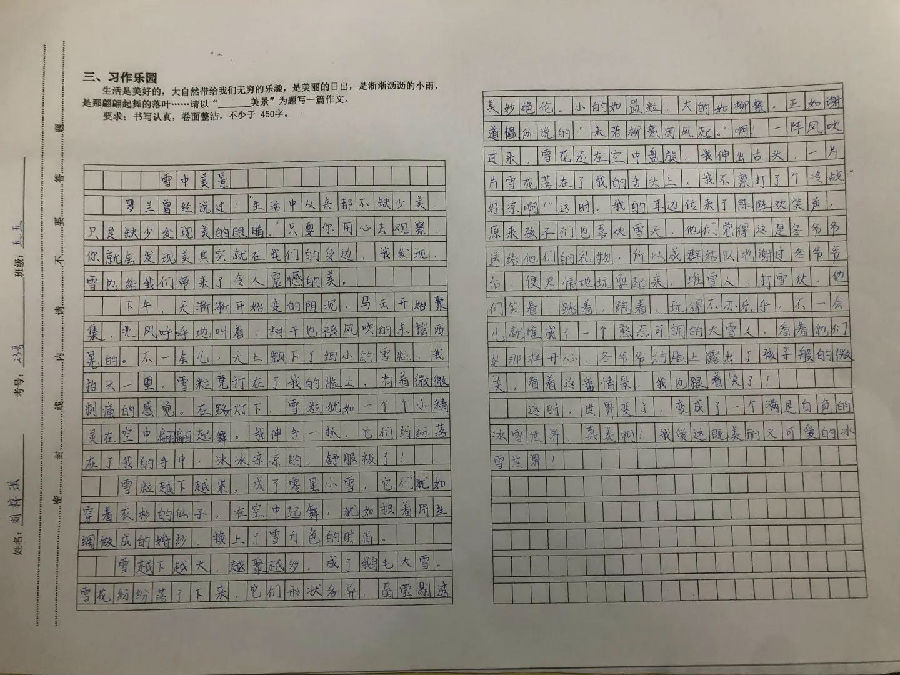 三、习作乐园
生活是美好的，大自然带给我们无穷的乐趣，是美丽的日出，是淅淅沥沥的小雨，
是那翩翩起舞的落叶……请以“______美景”为题写一篇作文。
要求：书写认真，卷面整洁，不少于 450字。
雪中美景
罗兰曾经说过：“生活中从来都不缺少美，
只是缺少发现美的眼睛。”只要你用心去观察，
你就会发现美其实就在我们的身边。我发现，
雪也给我们带来了令人震撼的美。
下午，天渐渐开始变的阴沉，乌云开始聚
集，寒风呼呼地叫着，树干也被风吹的东摇西
晃的。不一会儿，天上飘下了细小的雪粒，我
抬头一望，雪粒落打在了我的脸上，有着微微
刺痛的感觉。在路灯下，雪粒犹如一个个小精
灵在空中翩翩起舞。我伸手一抓，它们纷纷落
在了我的手中，冰冰凉凉的，舒服极了！
雪粒越下越密，成了零星小雪，它们犹如
穿着的仙子，在空中起舞，犹如
绸做成的，换上了雪白色的
雪越下越大，越聚越多，成了鹅毛大雪。
雪花纷纷落了下来，它们形状各异，
美妙绝伦，小的如晶粒，大的如柳絮，正如谢
道韫所说的“未若柳絮因风起。”啊！一阵风吹
过来，雪花还在空中盘旋，我伸出舌头，一片
片雪花落在了我的舌头上，我不禁打了个冷战
好凉啊！”这时，我的耳边传来了阵阵欢笑声，
原来孩子们也喜欢雪天，他们觉得这是冬爷爷
送给他们的礼物，所以成群结队地谢过冬爷爷
后，便尽情地玩耍起来，堆雪人，打雪仗，他
们笑着，跳着，跑着，玩得不亦乐乎，不一会
儿就堆完了一个憨态可掬的大雪人，看着孩子
们那样开心，冬爷爷的脸上露出了孩子般的微
笑，看着这番情景，我也跟着笑了！
这时，世界变了，变成了一个满是白色的
冰雪世界，真美啊！我爱这既美丽又可爱的冰
雪世界！